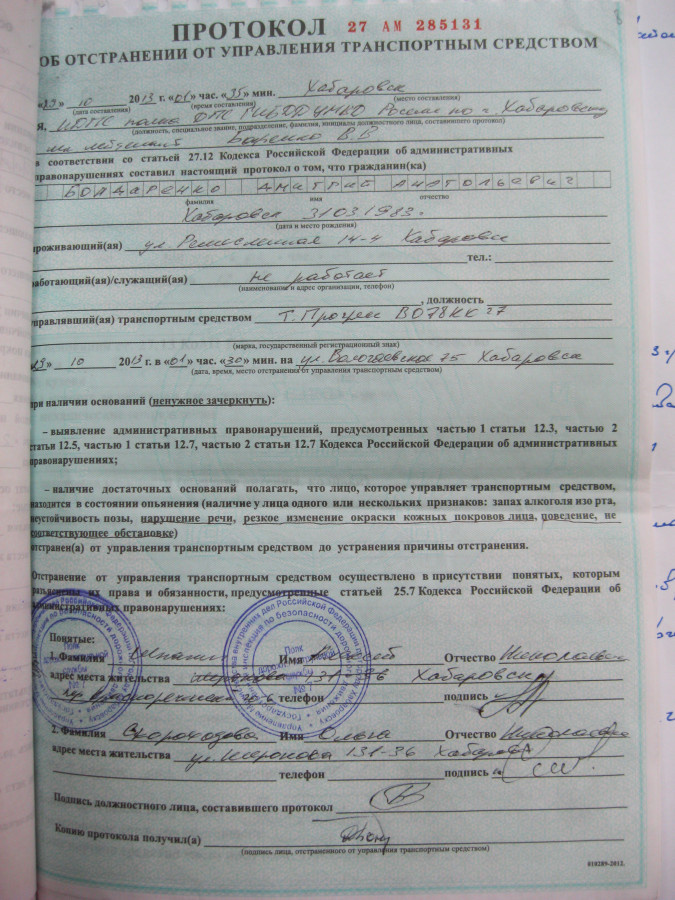 ПРОТОКОЛ 27 АМ 285131
ОБ ОТСТРАНЕНИИ ОТ УПРАВЛЕНИЯ ТРАНСПОРТНЫМ СРЕДСТВОМ
«29» 10 2013 г. «01» час. «35» мин. Хабаровск
(дата составления) (время составления) (место составления)
Я, ИДПС полка ДПС ГИБДД УМВД России по г. Хабаровску
(должность, специальное звание, подразделение, фамилия, инициалы должностного лица, составившего протокол)
мл. лейтенант В.В
в соответствии со статьей 27.12 Кодекса Российской Федерации об административных
правонарушениях составил настоящий протокол о том, что гражданин(ка)
БОНДАРЕНКО ДМИТРИЙ АНАТОЛЬЕВИЧ
фамилия имя отчество
Хабаровск 31031983г.
(дата и место рождения)
проживающий(ая) ул. Ремесленная 14-4 Хабаровск
тел.:
работающий(ая)/служащий(ая) не работает
(наименование и адрес организации, телефон)
, должность
управлявший(ая) транспортным средством Т. Прогрес В078КК 27
(марка, государственный регистрационный знак)
«29» 10 2013 г. в «01» час. «30» мин. на ул. Волочаевская 75 Хабаровск
(дата, время, место отстранения от управления транспортным средством)
при наличии оснований (ненужное зачеркнуть):
– выявление административных правонарушений, предусмотренных частью 1 статьи 12.3, частью 2
статьи 12.5, частью 1 статьи 12.7, частью 2 статьи 12.7 Кодекса Российской Федерации об административных
правонарушениях;
– наличие достаточных оснований полагать, что лицо, которое управляет транспортным средством,
находится в состоянии опьянения (наличие у лица одного или нескольких признаков: запах алкоголя изо рта,
неустойчивость позы, нарушение речи, резкое изменение окраски кожных покровов лица, поведение, не
соответствующее обстановке)
отстранен(а) от управления транспортным средством до устранения причины отстранения.
Отстранение от управления транспортным средством осуществлено в присутствии понятых, которым
разъяснены их права и обязанности, предусмотренные статьей 25.7 Кодекса Российской Федерации об
административных правонарушениях:
Понятые:
1. Фамилия Имя Отчество
адрес места жительства 131-36 Хабаровск
телефон подпись
2. Фамилия Скороходова Имя Ольга Отчество
адрес места жительства ул. Шеронова 131-36 Хабаровск
телефон подпись
Подпись должностного лица, составившего протокол
Копию протокола получил(а)
(подпись лица, отстраненного от управления транспортным средством)
010289-2012.